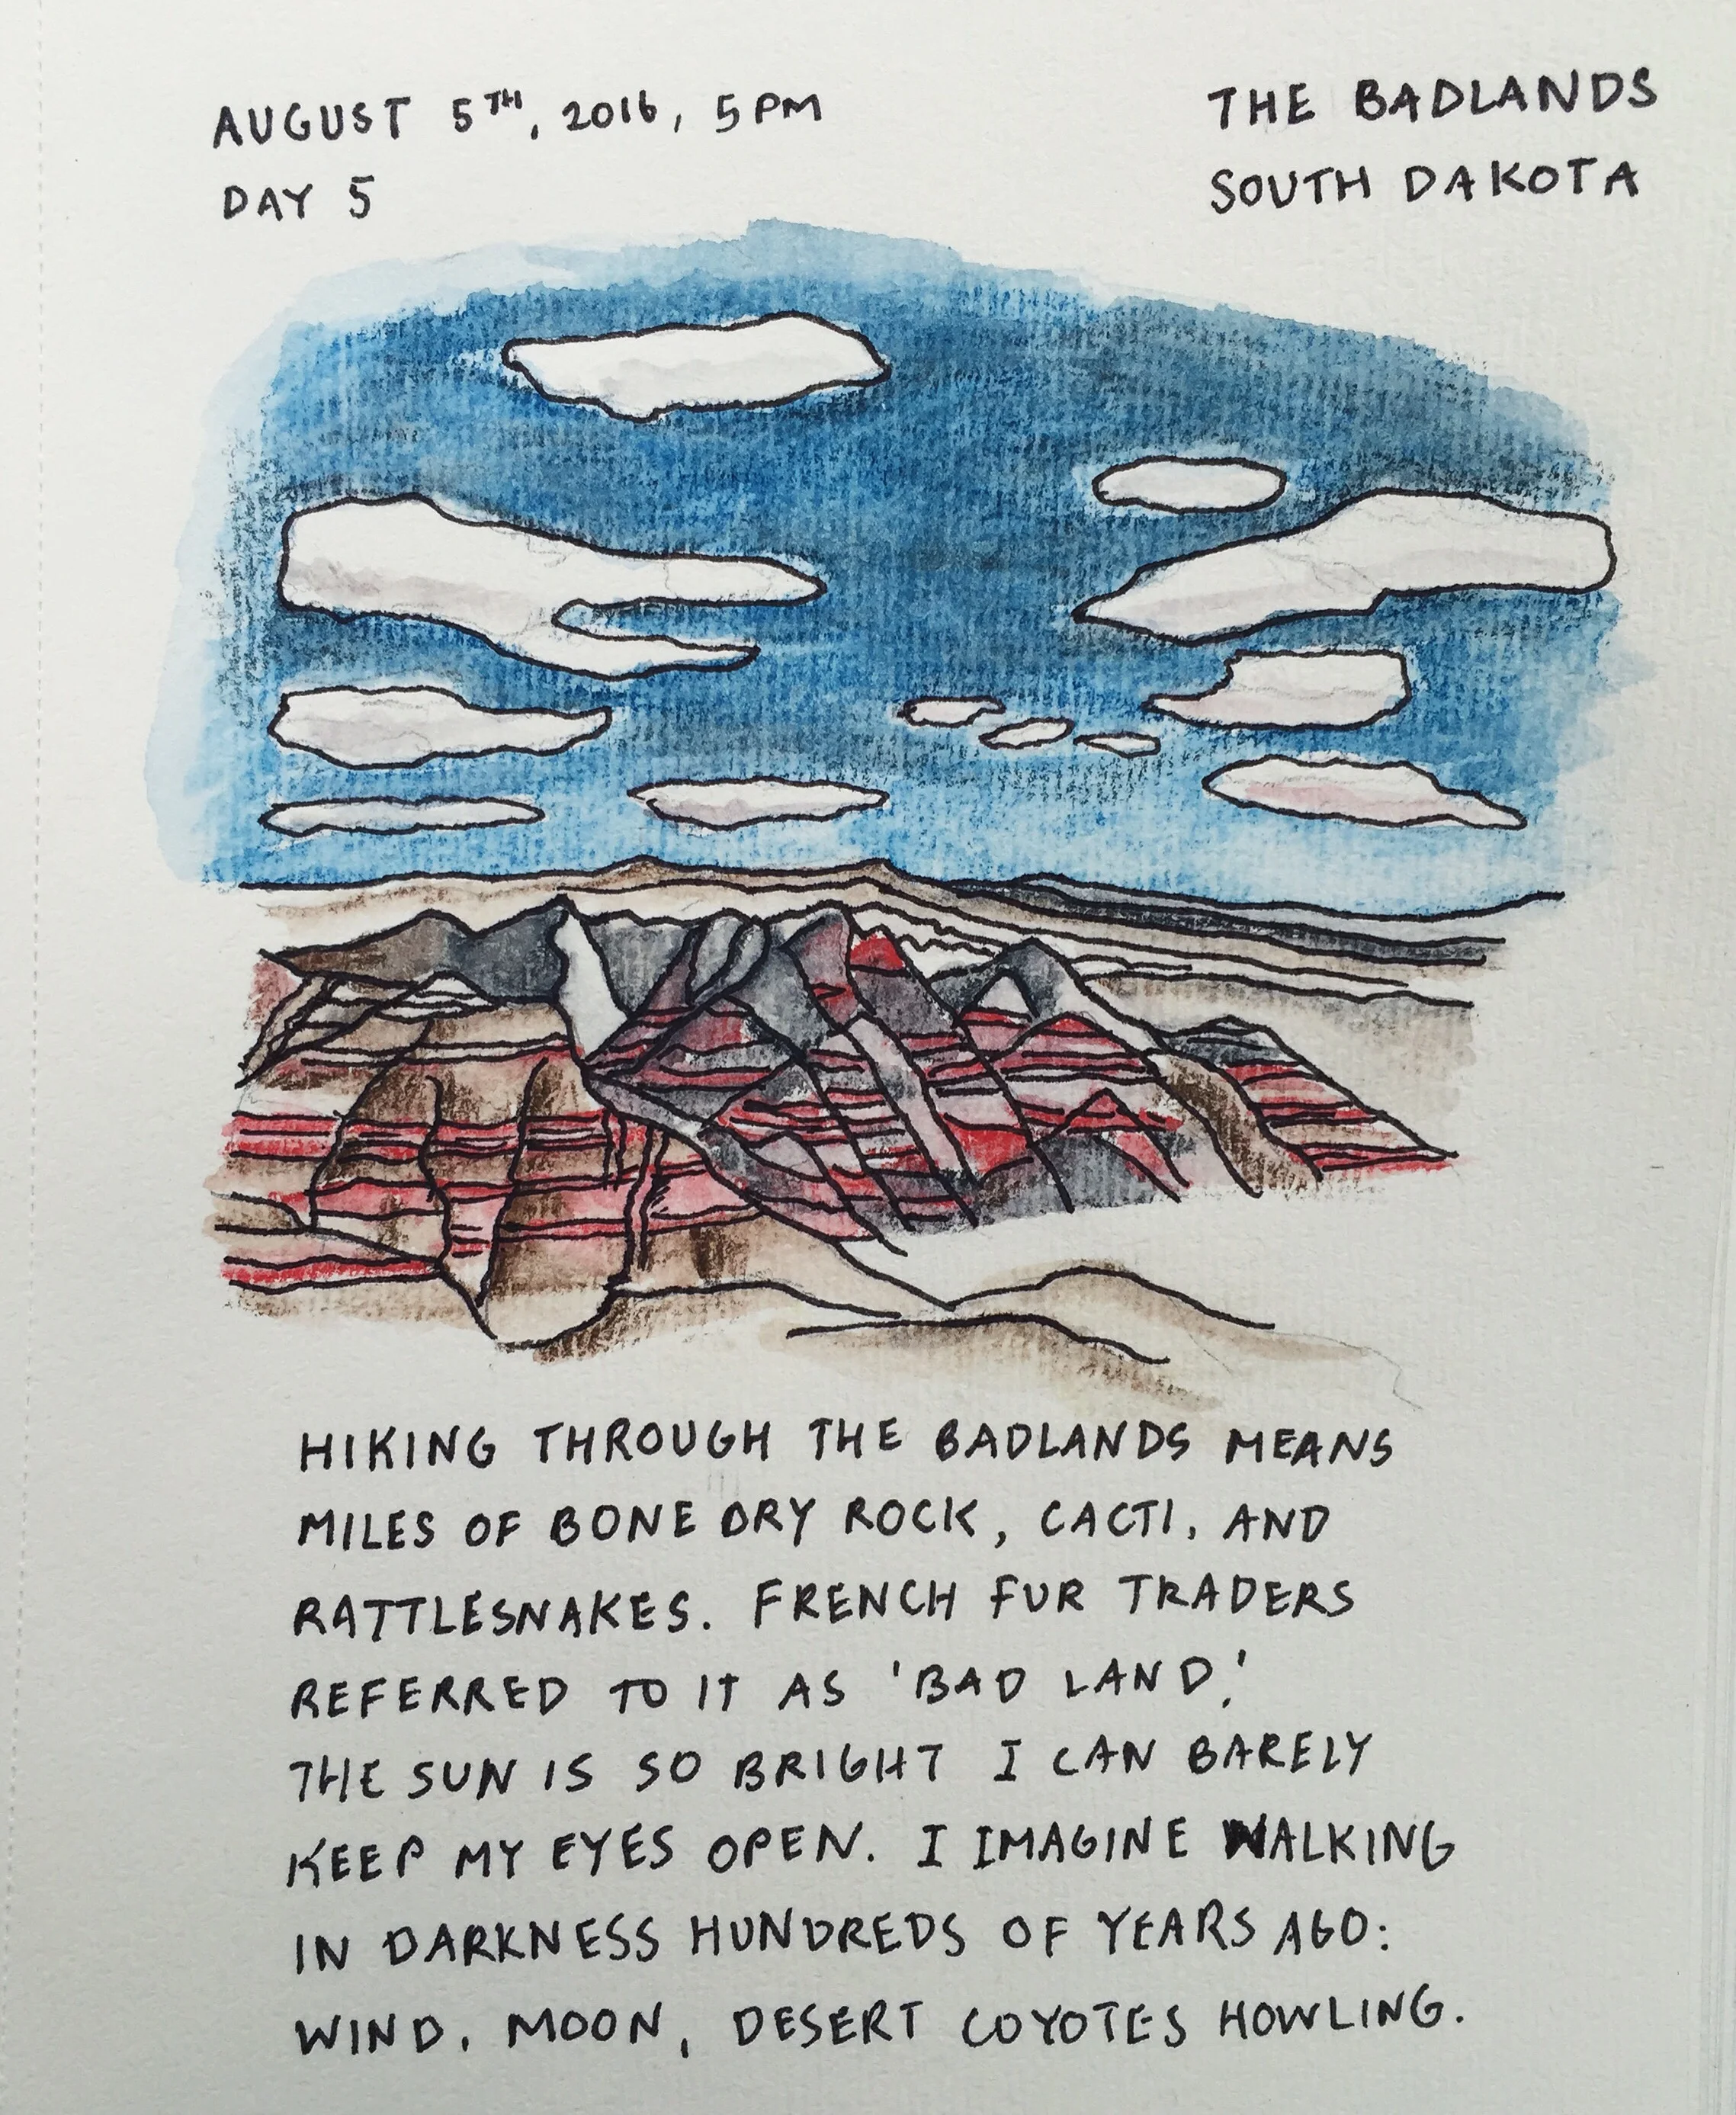 AUGUST 5TH, 2016, 5 PM
DAY 5
THE BADLANDS
SOUTH DAKOTA
HIKING THROUGH THE BADLANDS MEANS
MILES OF BONE DRY ROCK, CACTI, AND
RATTLESNAKES. FRENCH FUR TRADERS
REFERRED TO IT AS 'BAD LAND.'
THE SUN IS SO BRIGHT I CAN BARELY
KEEP MY EYES OPEN. I IMAGINE WALKING
IN DARKNESS HUNDREDS OF YEARS AGO:
WIND, MOON, DESERT COYOTES HOWLING.